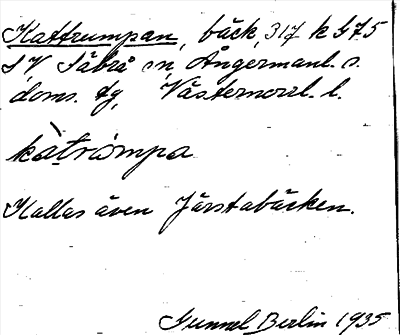 Kattrumpan, bäck, 317 k G 7 5
SV Säbrå sn, Ångermanl. s.
doms. tg, Västernorrl. l.
kàtrómpa
Kallas även Järstabäcken.
Gunnel Berlin 1935